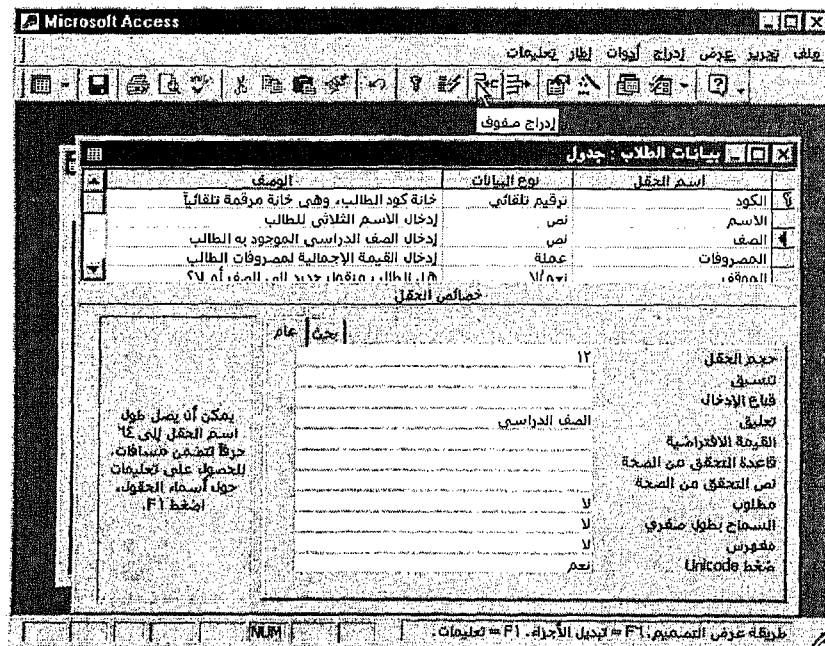 Microsoft Access
ملف تحرير عرض إدراج أدوات إطار تعليمات
إدراج صفوف
بيانات الطلاب : جدول
اسم الحقل نوع البيانات الوصف
الكود ترقيم تلقائي خانة كود الطالب، وهي خانة مرقمة تلقائياً
الاسم نص إدخال الاسم الثلاثي للطالب
الصف نص إدخال الصف الدراسي الموجود به الطالب
المصروفات عملة إدخال القيمة الإجمالية لمصروفات الطالب
الموقف نعم/لا هل الطالب منقول جديد إلى الصف أم لا؟
خصائص الحقل
عام بحث
حجم الحقل ١٢
تنسيق
قناع الإدخال
تعليق الصف الدراسي
القيمة الافتراضية
قاعدة التحقق من الصحة
نص التحقق من الصحة
مطلوب لا
السماح بطول صفري لا
مفهرس لا
ضغط Unicode نعم
يمكن أن يصل طول
اسم الحقل إلى ٦٤
حرفاً تتضمن مسافات.
للحصول على تعليمات
حول أسماء الحقول،
اضغط F١.
طريقة عرض التصميم. F٦ = تبديل الأجزاء. F١ = تعليمات.
NUM